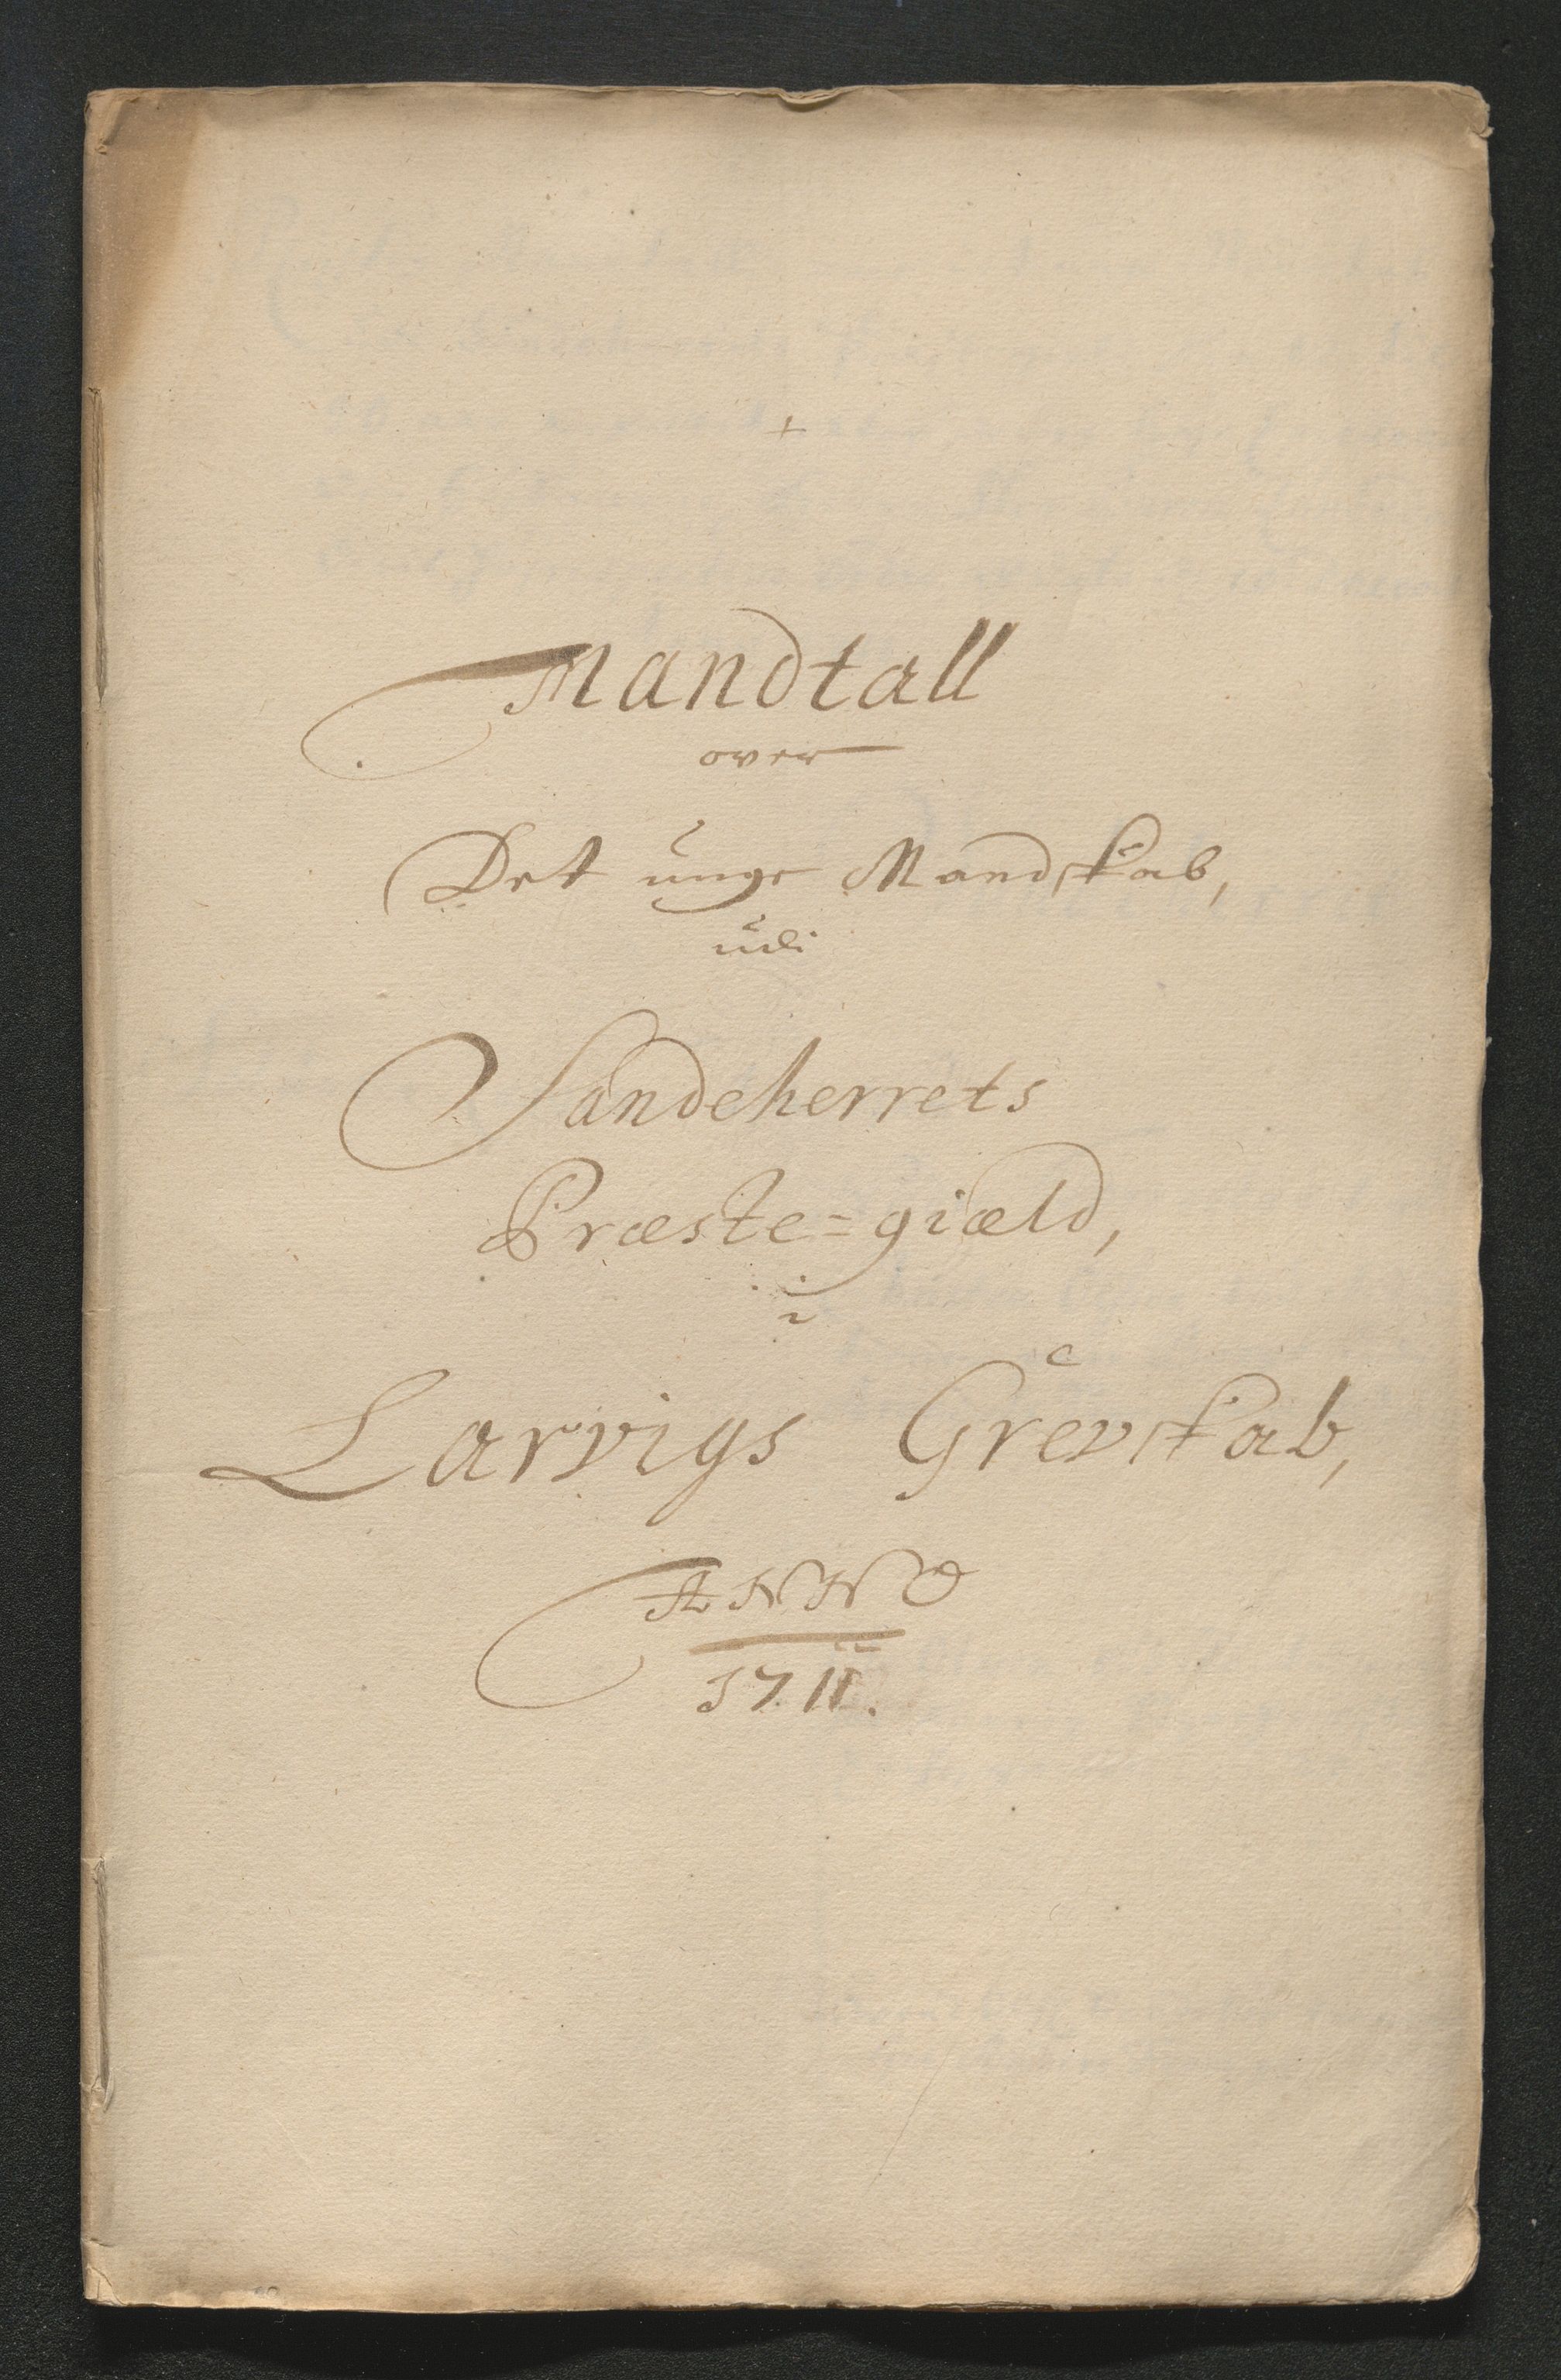 +
Mandtall
over
Det unge Mandskab,
udi
Sandeherrets
Præste=giæld,
i
Larvigs Grevskab,
ANNO
1711.